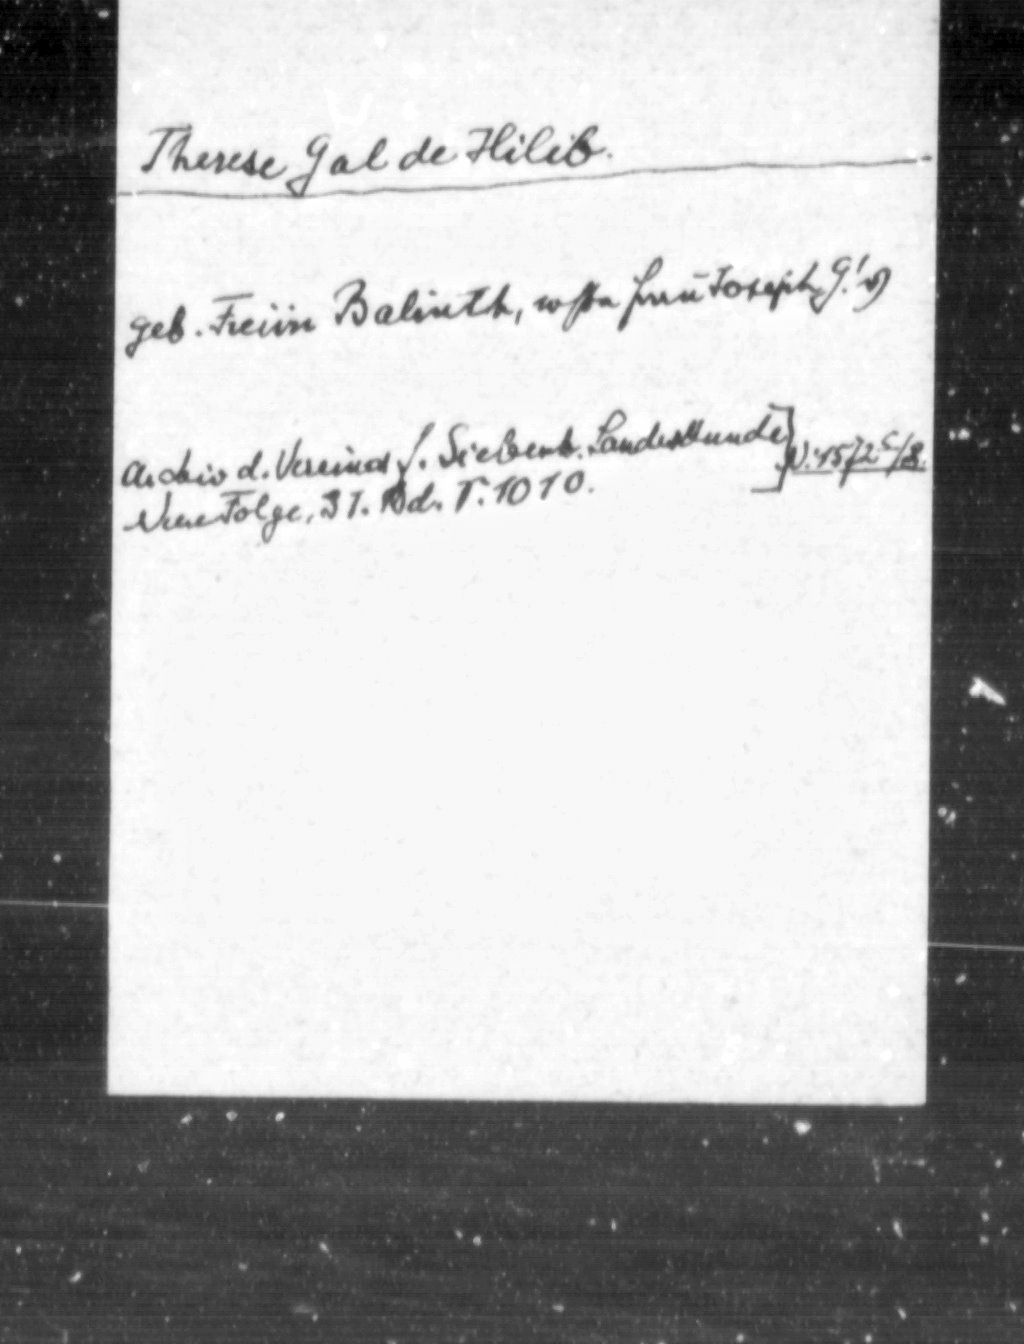 Therese Gal de Hilib.
geb. Freiin Balinth, Frau Joseph G!s)
Archiv d. Vereines f. Siebenb. Landeskunde] V. 1572 c/8.
Neue Folge, 31. Bd. S. 1010.